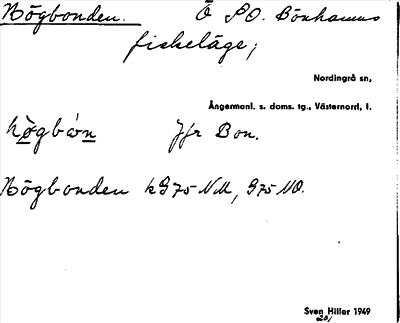 Högbonden. Ö SO. Bönhamns
fiskeläge;
Nordingrå sn,
Ångermanl. s. doms. tg., Västernorrl. l.
hö̀gbón Jfr Bon.
Högbonden kG75 NV, G75 NO.
Sven Hiller 1949
201